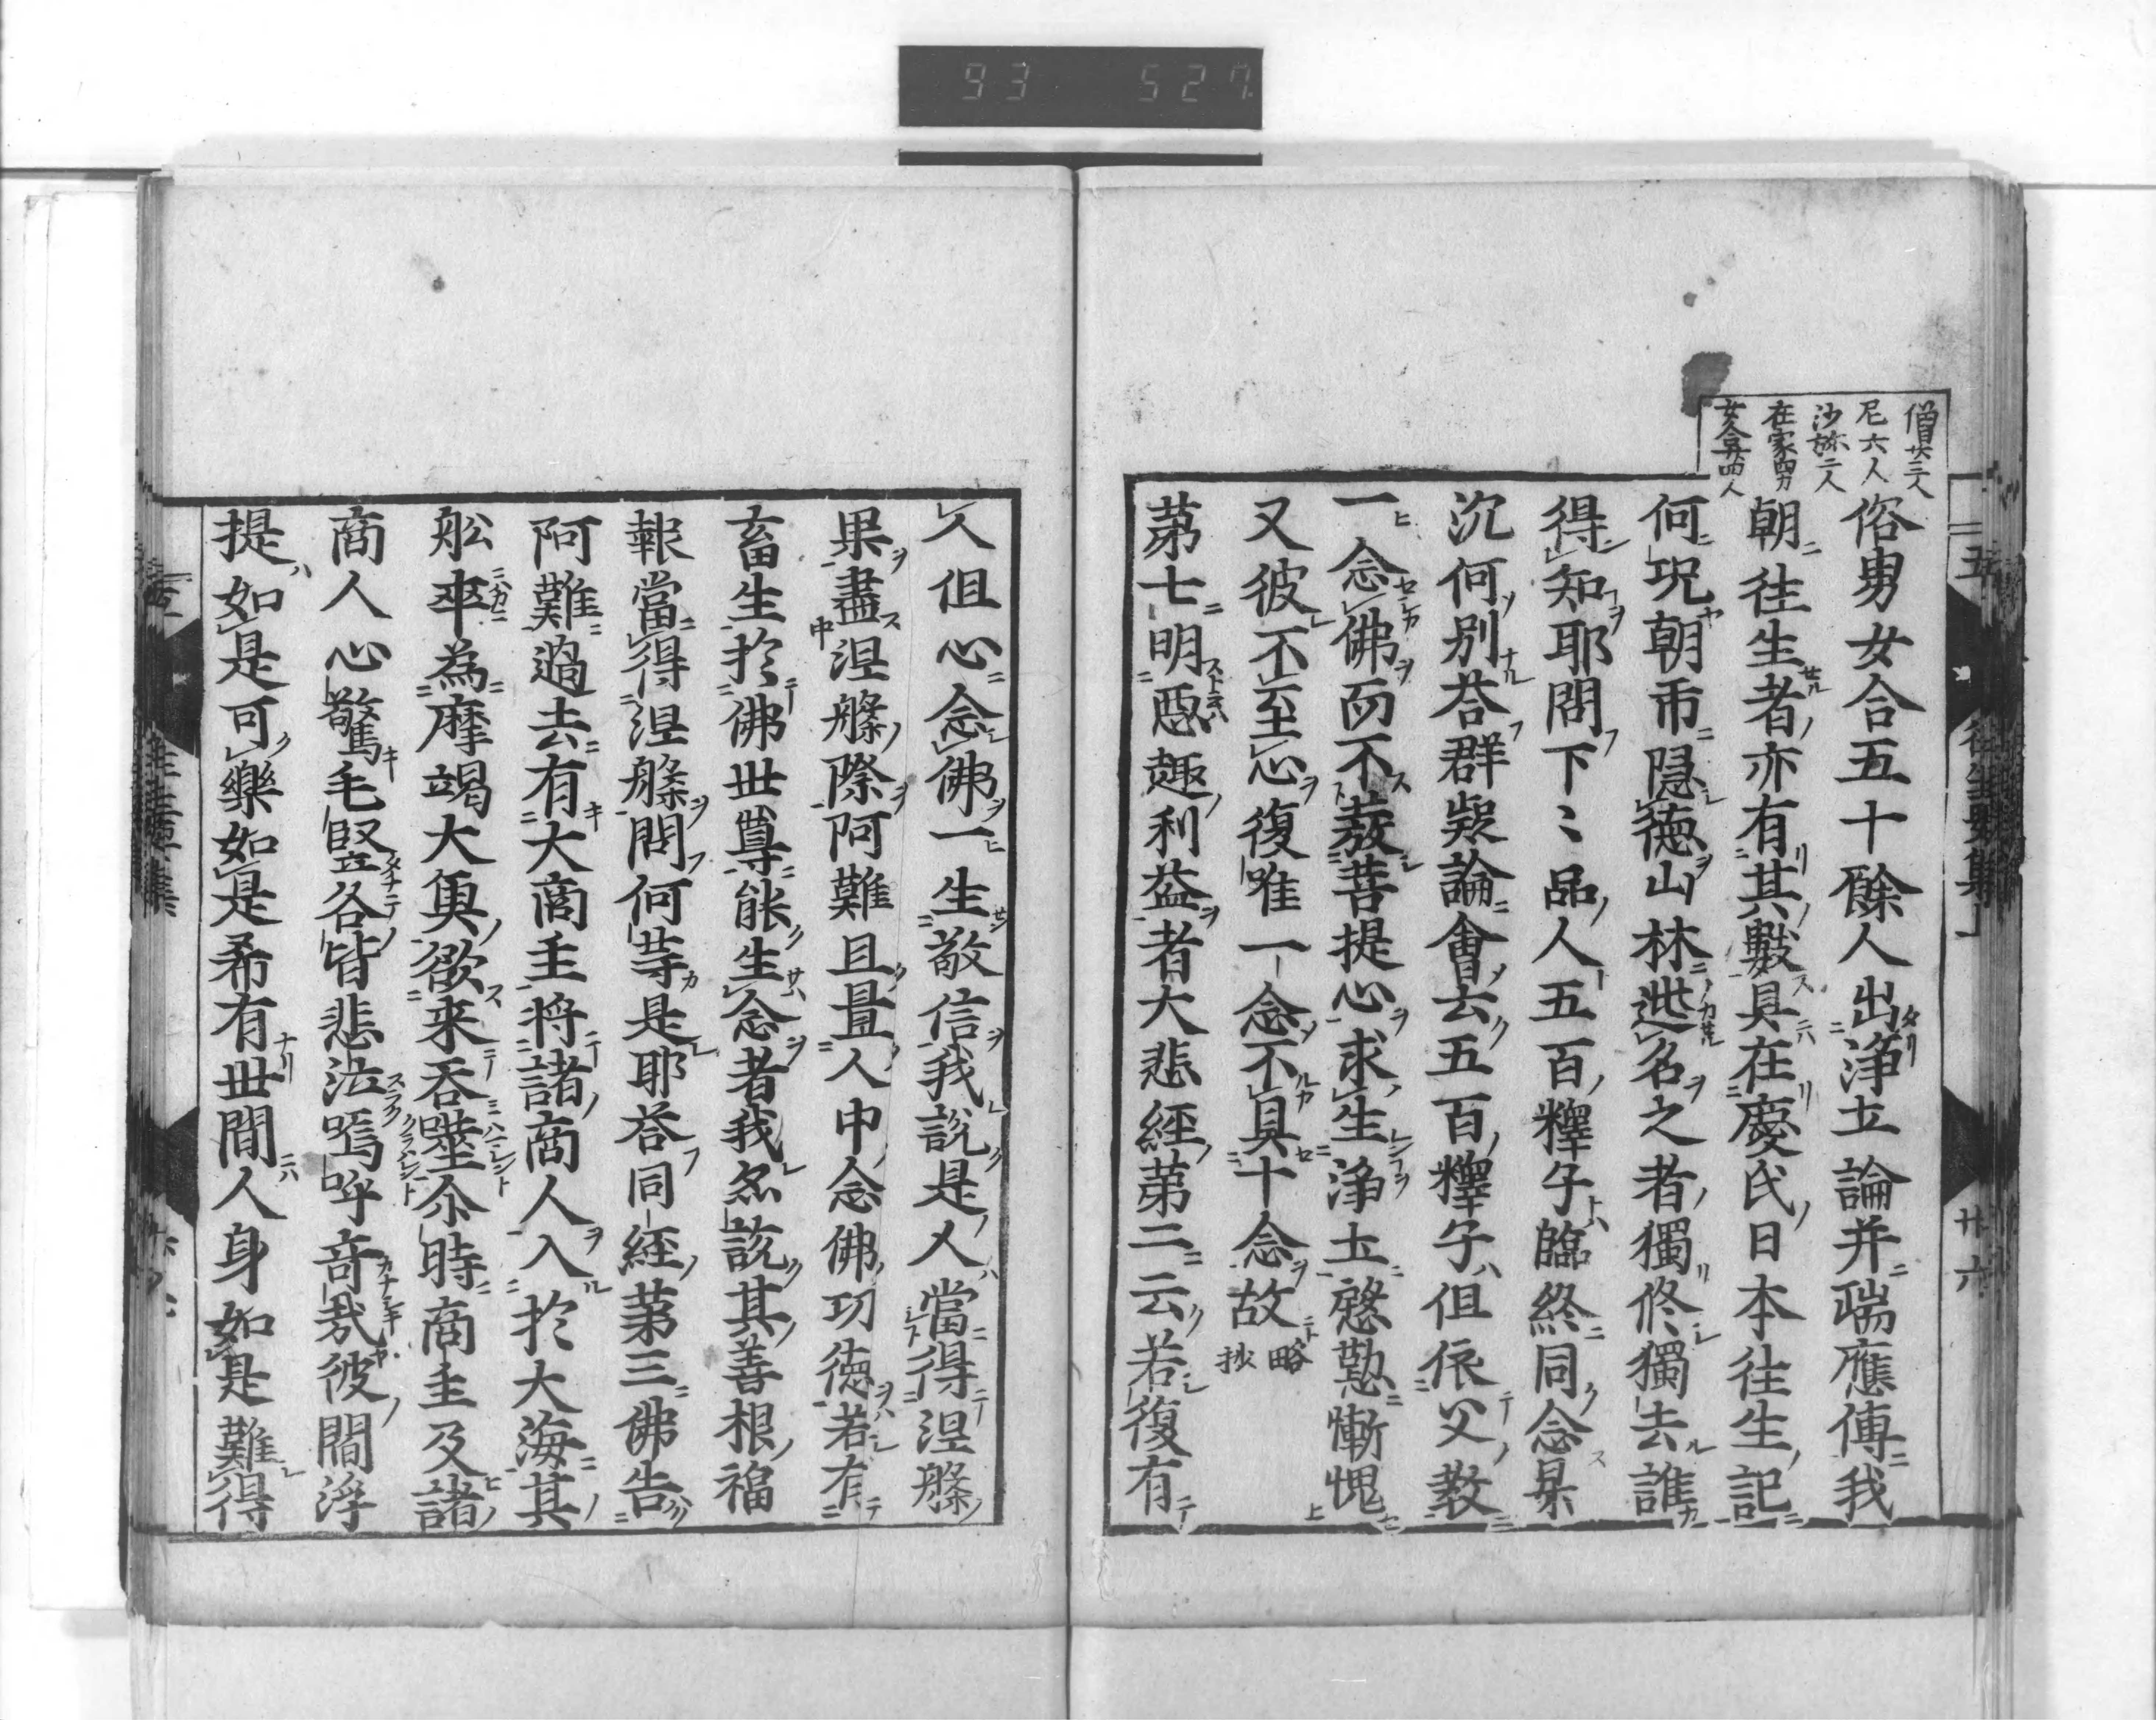 93 527
僧廿三人
尼六人
沙弥二人
在家男女合廿四人
俗男女合五十餘人出淨土論并瑞應傳我
朝往生者亦有其數具在慶氏日本往生記
何况朝市隱德山林逃名之者獨修獨去誰
得知耶問下〻品人五百釋子臨終同念昇
沉何別荅群疑論會云五百釋子但依父教
一念佛而不發菩提心求生淨土慇懃慚愧
又彼不至心復唯一念不具十念故略抄
第七明惡趣利益者大悲經第二云若復有
人但心念佛一生敬信我說是人當得涅槃
果盡涅槃際阿難且置人中念佛功德若有
畜生於佛世尊能生念者我亦說其善根福
報當得涅槃問何等是耶荅同經第三佛告
阿難過去有大商主將諸商人入於大海其
舩卒為摩竭大魚欲来吞噬尒時商主及諸
商人心驚毛竪各皆悲泣嗚呼奇哉彼閻浮
提如是可樂如是希有世間人身如是難得
五
往生要集上
廿六